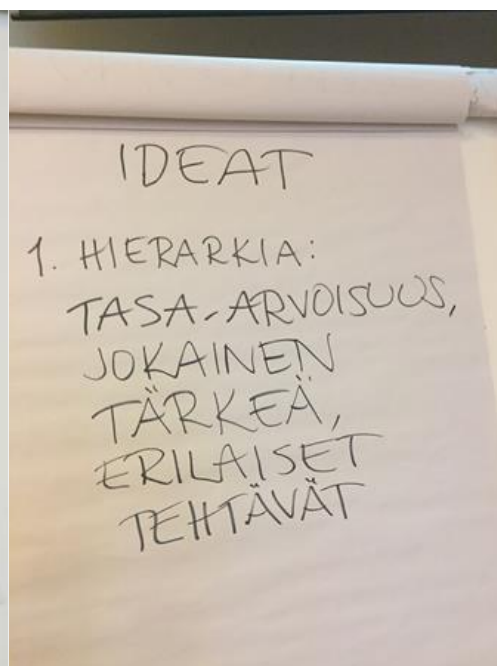 IDEAT
1. HIERARKIA:
TASA-ARVOISUUS,
JOKAINEN
TÄRKEÄ,
ERILAISET
TEHTÄVÄT